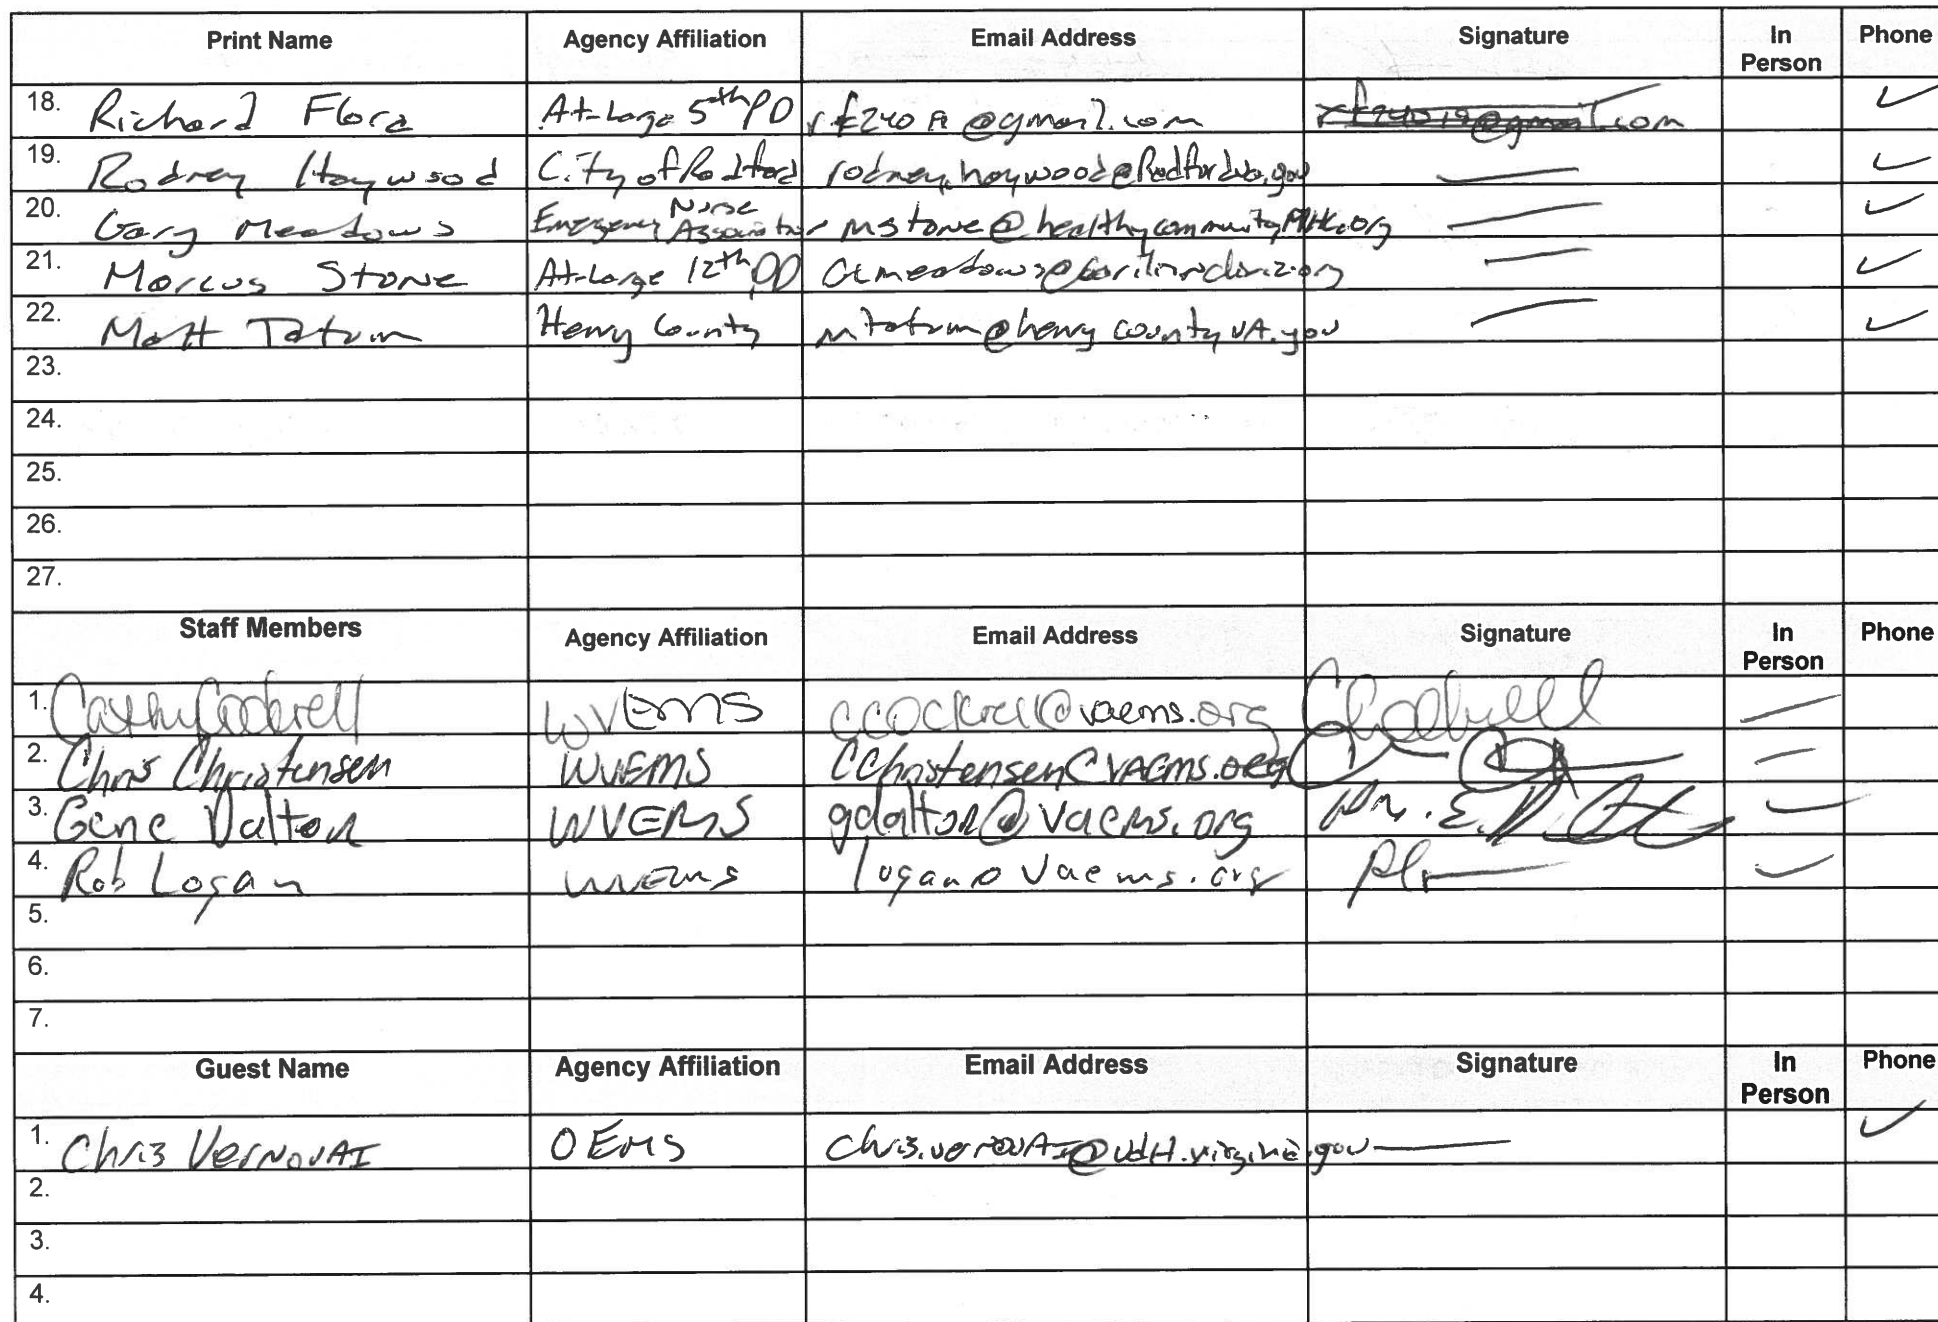 Print Name Agency Affiliation Email Address Signature In Person Phone
18. Richard Flora At-Large 5th PD @gmail.com
19. Rodney Haywood City of Radford rodney.haywood@Radfordva.gov
20. Gary Meadows Emergency Nurse Association mstone@healthycommunityMHC.org
21. Marcus Stone At-Large 12th PD
22. Matt Tatum Henry County mtatum@henrycountyVA.gov
23.
24.
25.
26.
27.
Staff Members Agency Affiliation Email Address Signature In Person Phone
1. Cathy Cockrell WVEMS ccockrell@vaems.org
2. Chris Christensen WVEMS CChristensen@VAEMS.org
3. Gene Dalton WVEMS gdalton@vaems.org
4. Rob Logan WVEMS logan@vaems.org
5.
6.
7.
Guest Name Agency Affiliation Email Address Signature In Person Phone
1. Chris VernovAI OEMS Chris.vernovAI@vdH.virginia.gov
2.
3.
4.